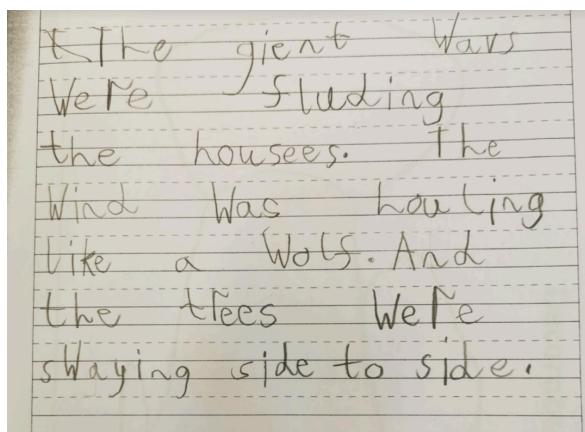 The gient Wavs
Were fluding
the housees. The
Wind Was houling
like a Wolf. And
the trees Were
sWaying side to side.